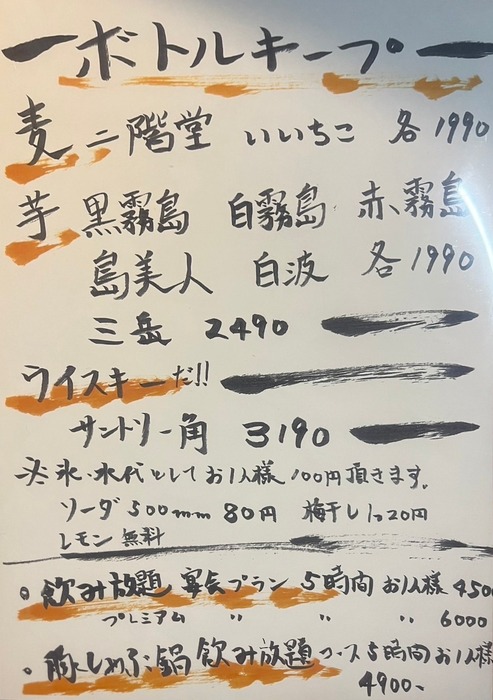 ボトルキープ
麦 二階堂 いいちこ 各1990
芋 黒霧島 白霧島 赤霧島
島美人 白波 各1990
三岳 2490
ウイスキーだ!!
サントリー角 3190
※氷・水代としてお1人様100円頂きます。
ソーダ500mm 80円 梅干し1つ20円
レモン無料
・飲み放題 宴会プラン 5時間 お1人様 450
プレミアム 〃 〃 〃 6000
・豚しゃぶ鍋飲み放題コース5時間お1人様
4900-